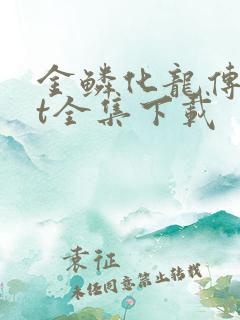 金鳞化龍傳
t全集下载
袁征
未经同意禁止转载